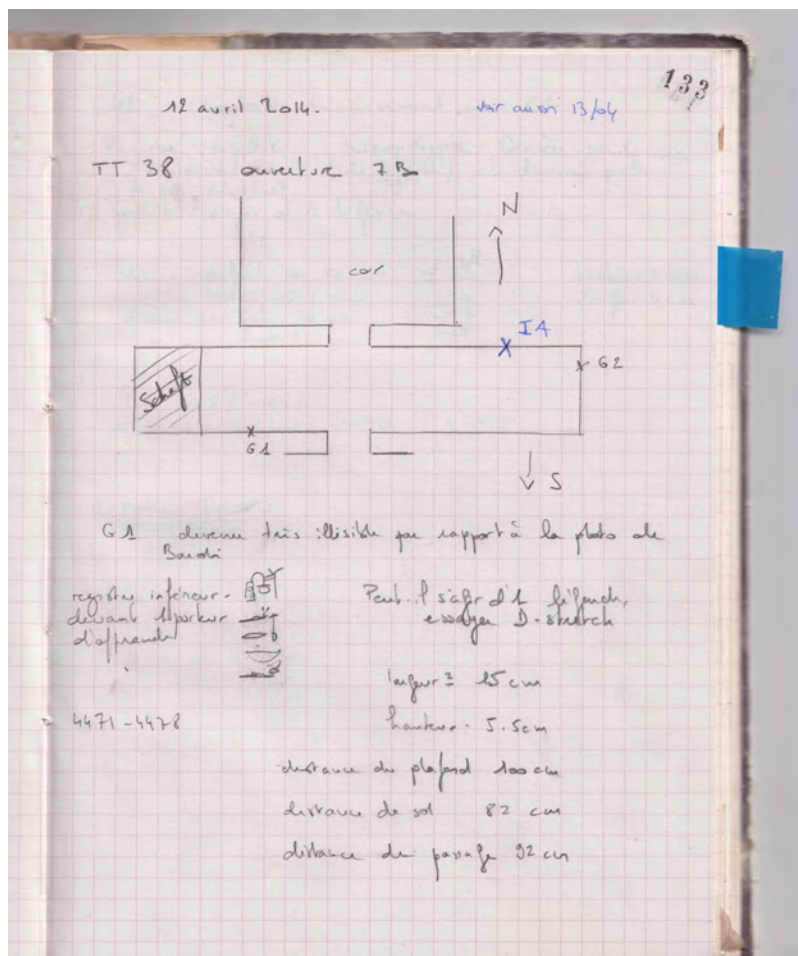 133
12 avril 2014.
voir aussi 13/04
TT 38 ouverture 7B
N
cour
I1
G2
Schaft
G1
S
G1 devenu très illisible par rapport à la photo de
registre inférieur.
devant 1 porteur
d'offrandes
Peut-il s'agir d'1 légende,
essayer D-stretch
largeur = 15 cm
4471-4478
hauteur. 5.5cm
distance du plafond 100 cm
distance de sol 82 cm
distance du passage 92 cm